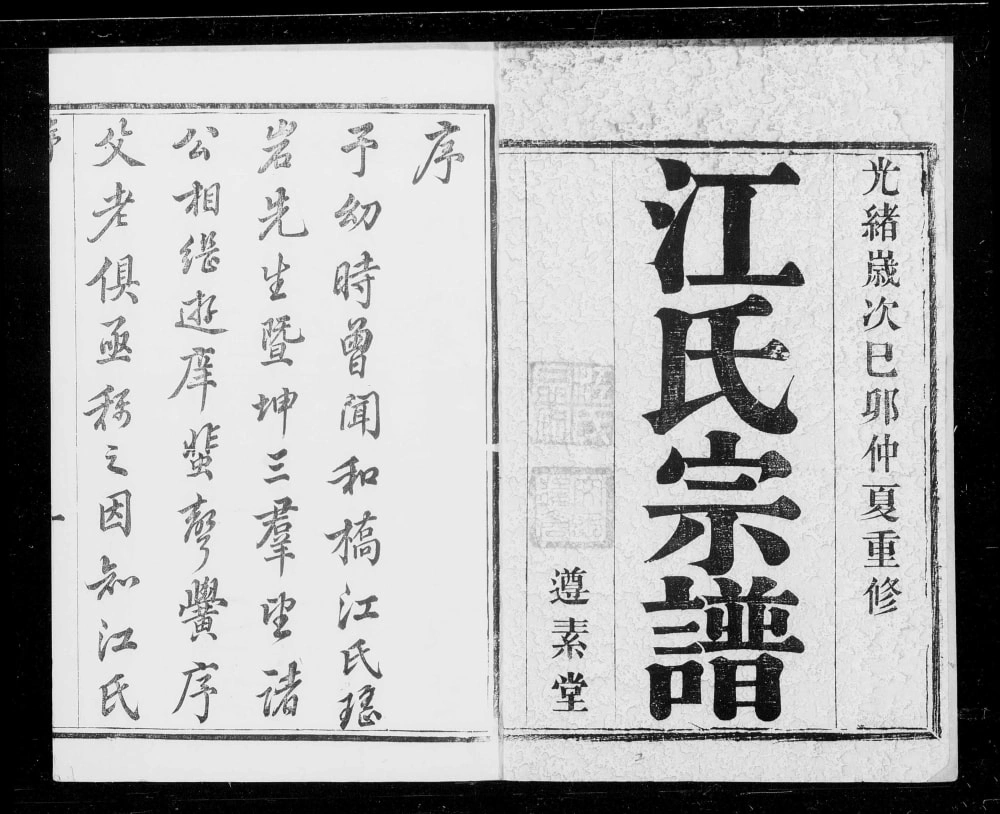 光緒嵗次巳卯仲夏重修
江氏宗譜
遵素堂
序
予幼時曾聞和橋江氏瑤
岩先生暨坤三羣望諸
公相继遊庠蜚聲黌序
父老俱亟稱之因知江氏